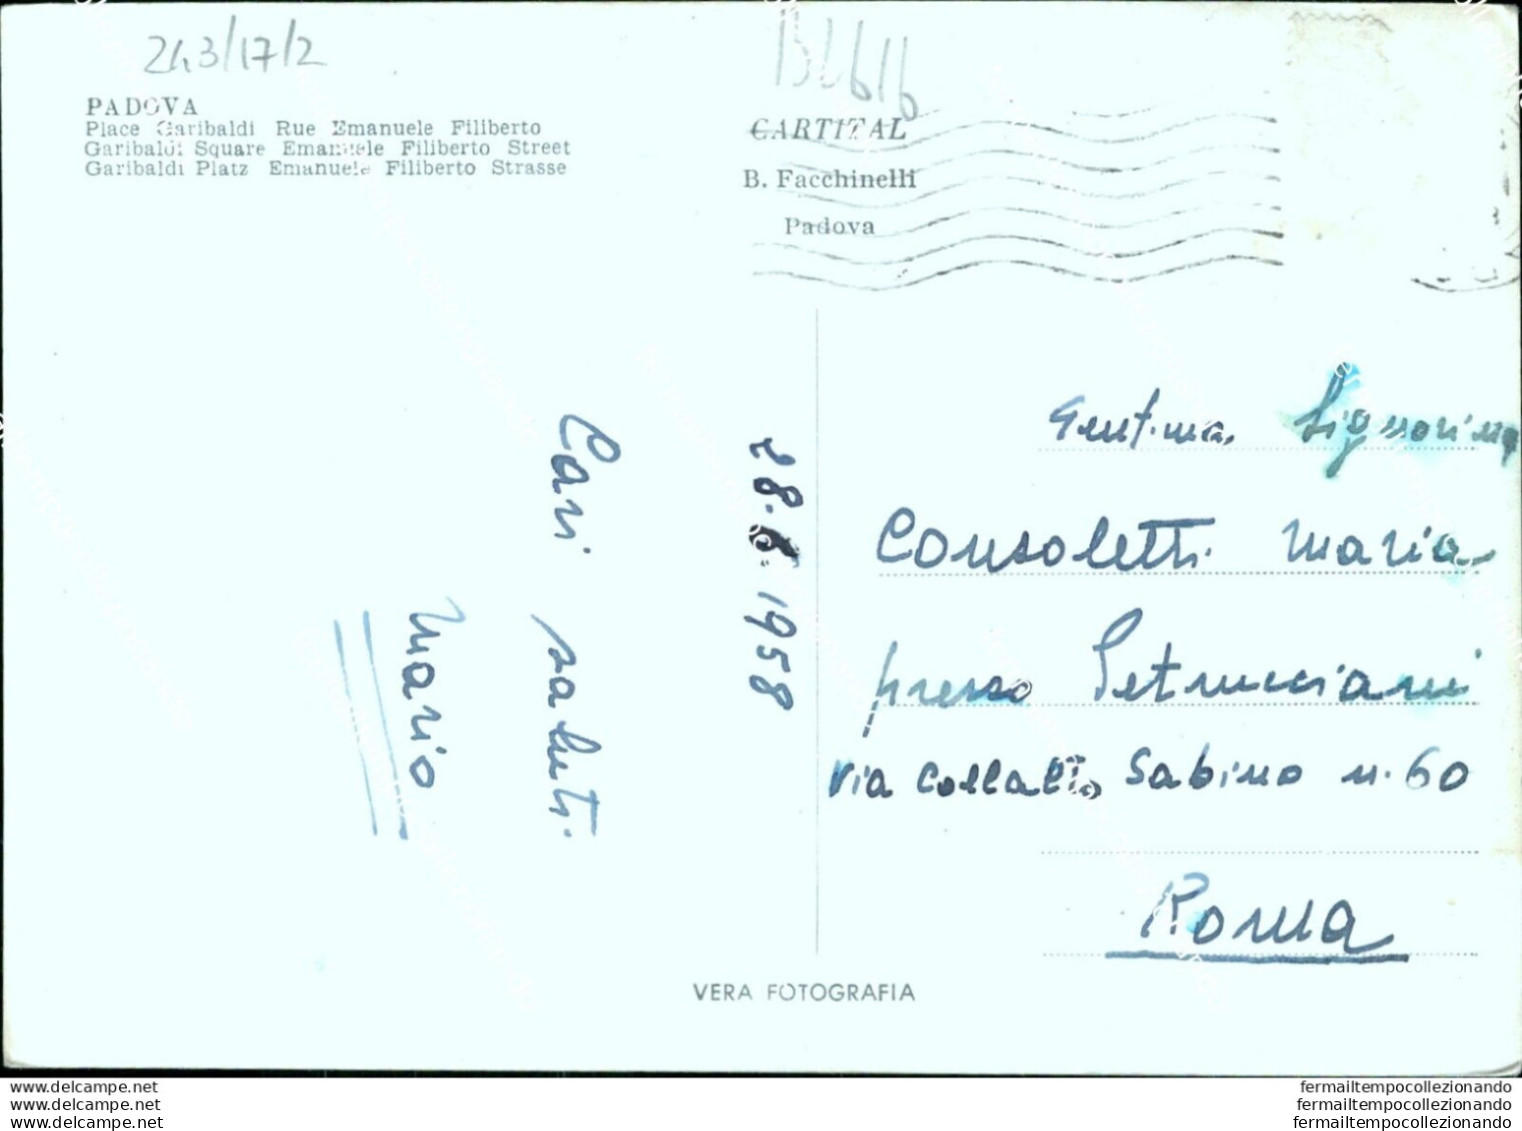 243/17/2
PADOVA
Place Garibaldi Rue Emanuele Filiberto
Garibaldi Square Emanuele Filiberto Street
Garibaldi Platz Emanuele Filiberto Strasse
CARTITAL
B. Facchinelli
Padova
Cari saluti
Mario
28.6.1958
Gent.ma Signorina
Consoletti Maria
presso Petrucciani
via Collalto Sabino n. 60
Roma
VERA FOTOGRAFIA
www.delcampe.net
www.delcampe.net
www.delcampe.net
fermailtempocollezionando
fermailtempocollezionando
fermailtempocollezionando